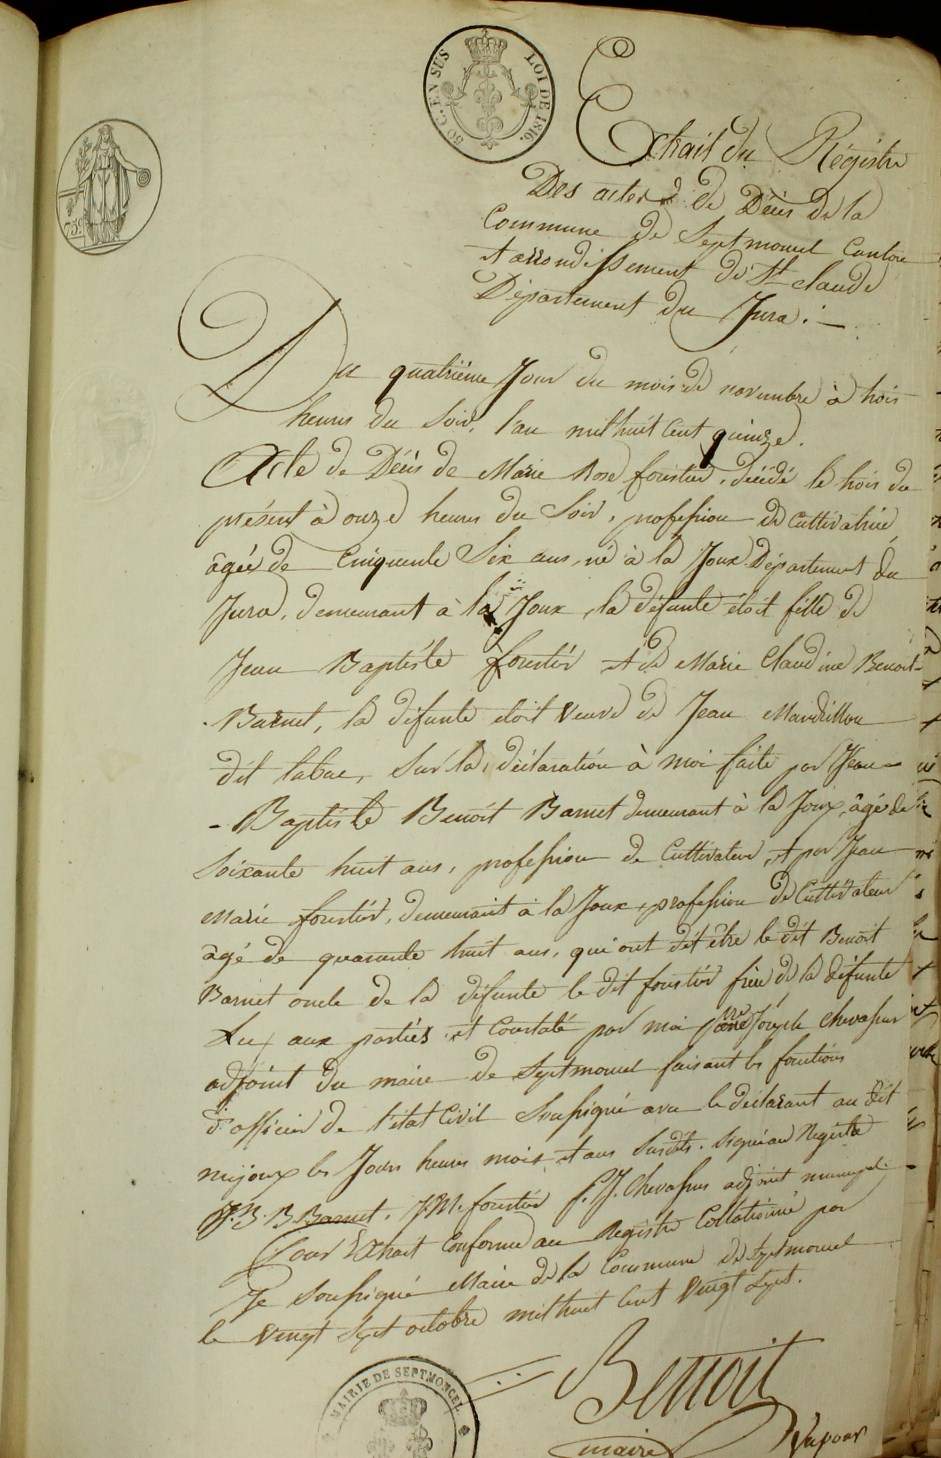 50 C. EN SUS
LOI DE 1816.
75c
Extrait du Régistre
Des actes de Décès de la
Commune de Septmoncel Canton
et arrondissement de St claude
Département du Jura.
Du quatriéme Jour du mois de novembre à trois
heures du Soir, l'an mil huit Cent quinze.
Acte de Décès de Marie Rose fourtier, décédé le trois du
présent à onze heures du Soir, profession de Cultivatrice,
âgée de Cinquente Six ans, né à la Joux Département du
Jura, demeurant à la Joux, la défunte étoit fille de
Jean Baptiste fourtier et de Marie Claudine Benoit-
Barnet, la défunte étoit Veuve de Jean Mandrillon
dit labac, Sur la déclaration à moi faite par Jean-
- Baptiste Benoit Barnet demeurant à la Joux, âgé de
Soixante huit ans, profession de Cultivateur, et par Jean
Marie fourtier, demeurant à la Joux, profession de Cultivateur
âgé de quarante huit ans, qui ont dit être le dit Benoit
Barnet oncle de la défunte le dit fourtier frère de la défunte
Lu aux parties et Constaté par moi pierre Joseph Chevassus
adjoint du maire de Septmoncel faisant les fonctions
d'officier de l'état Civil Soussigné avec le déclarant au dit
mijoux les Jours heures mois et ans Susdits. Signé au Registre
J.B.B. Barnet. J.M. fourtier P.J. Chevassus adjoint municipal.
Pour Extrait Conforme au Registre Collationné par
Je Soussigné Maire de la Commune de Septmoncel
le Vingt Sept octobre mil huit Cent Vingt Sept.
MAIRIE DE SEPTMONCEL
Benoit
maire
Vu pour